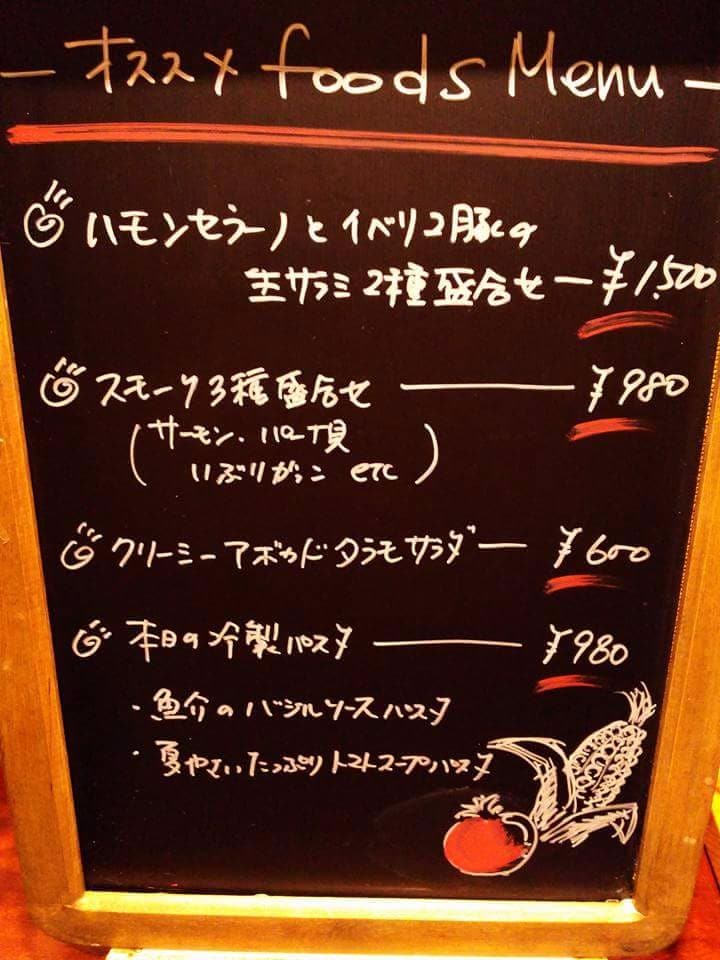 オススメ foods Menu
ハモンセラーノとイベリコ豚の
生サラミ2種盛合せ ー ¥1,500
スモーク3種盛合せ ¥980
(サーモン、ハロー貝
いぶりがっこ etc)
クリーミーアボカドタラモサラダ ー ¥600
本日の冷製パスタ ¥980
・魚介のバジルソースパスタ
・夏やさいたっぷりトマトスープパスタ